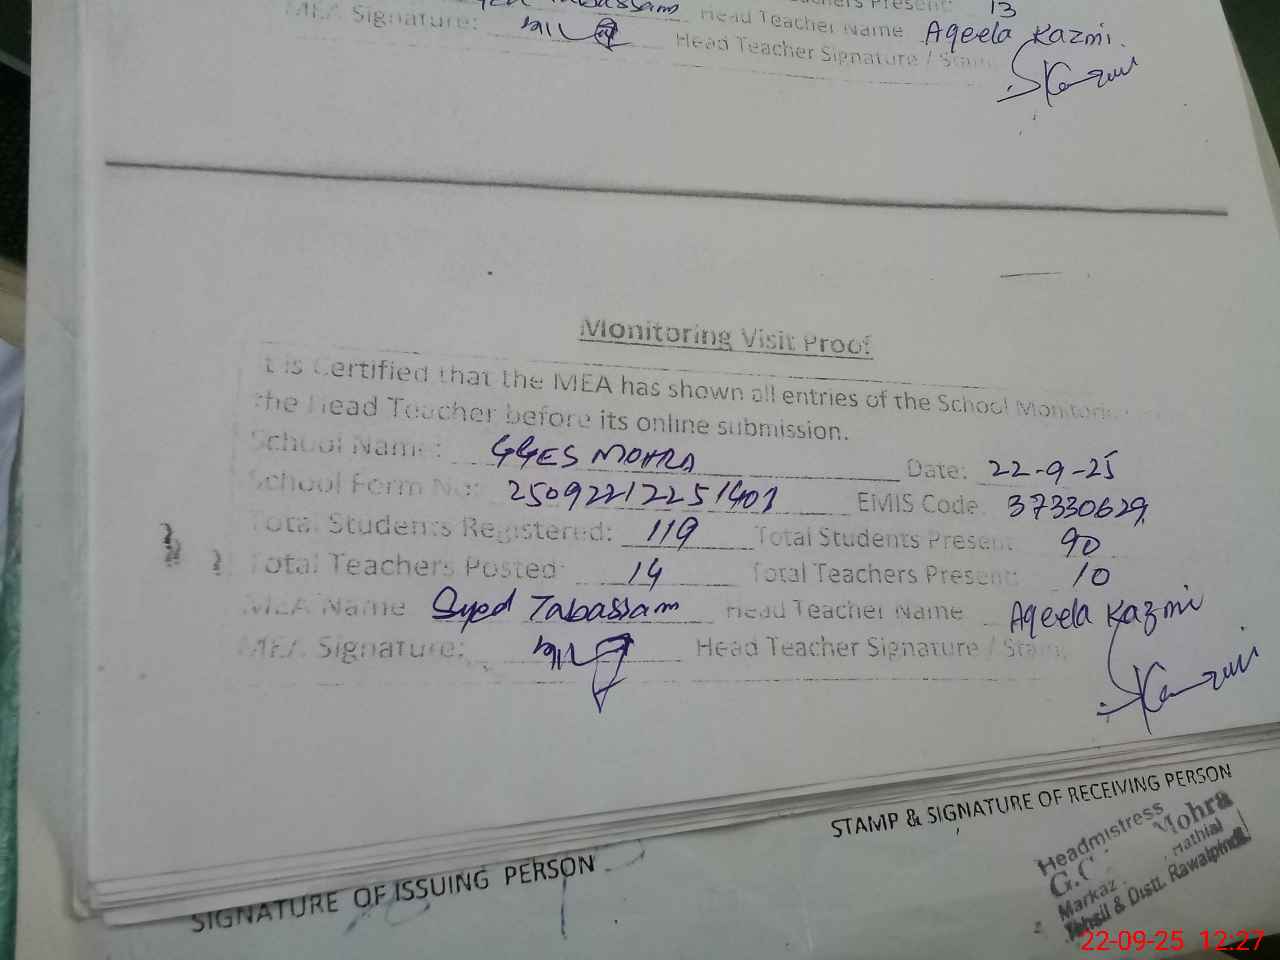 Tabassam
Present: 13
MEA Signature: Head Teacher Name Aqeela Kazmi.
Head Teacher Signature / Stamp
Monitoring Visit Proof
t is Certified that the MEA has shown all entries of the School Monitorin
the Head Teacher before its online submission.
School Name: GGES MOHRA Date: 22-9-25
School Form No: 25092212251401 EMIS Code 37330629
Total Students Registered: 119 Total Students Present 90
Total Teachers Posted: 14 Total Teachers Present: 10
MEA Name Syed Tabassam Head Teacher Name Aqeela Kazmi
MEA Signature: Head Teacher Signature / Stam
STAMP & SIGNATURE OF RECEIVING PERSON
SIGNATURE OF ISSUING PERSON
Headmistress
Mohra
Markaz Mathial
Tehsil & Distt. Rawalpindi
22-09-25 12:27